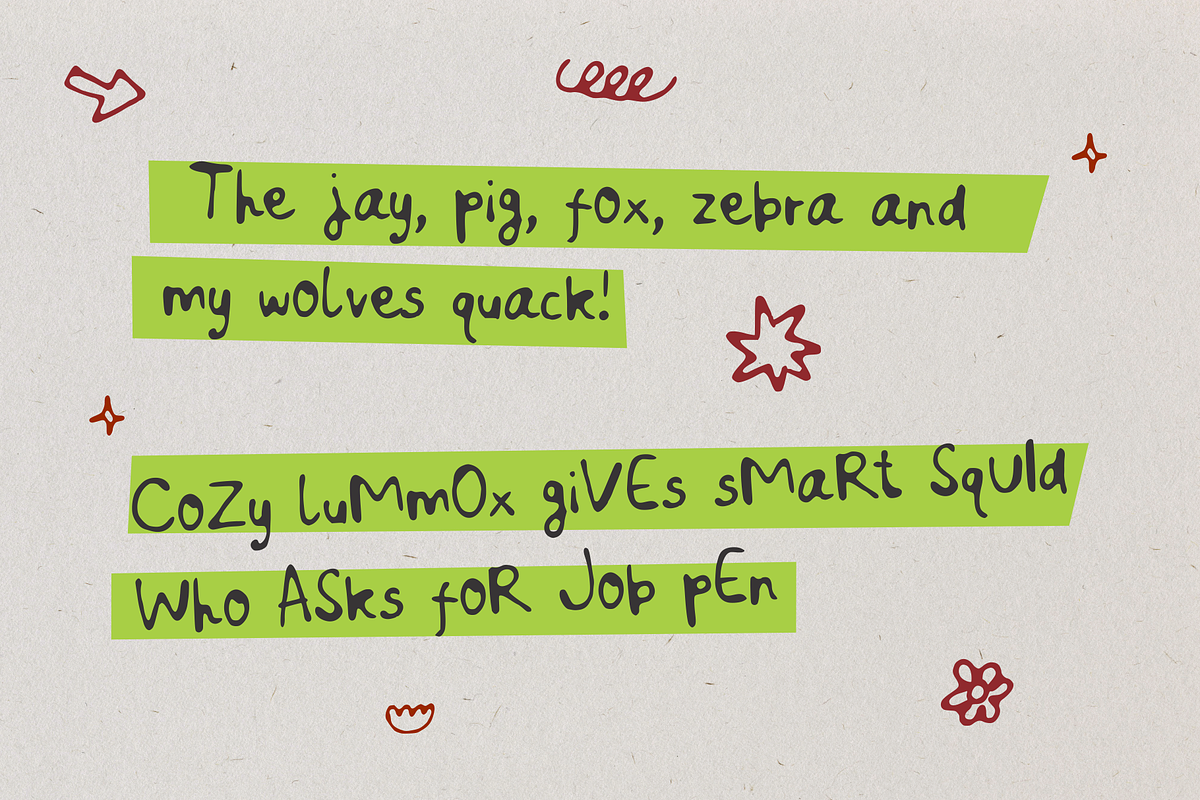 The jay, pig, fOx, zebra and
my wOlves quack!
CoZy luMmOx giVEs sMaRt SqUId
Who ASks foR Job pEn